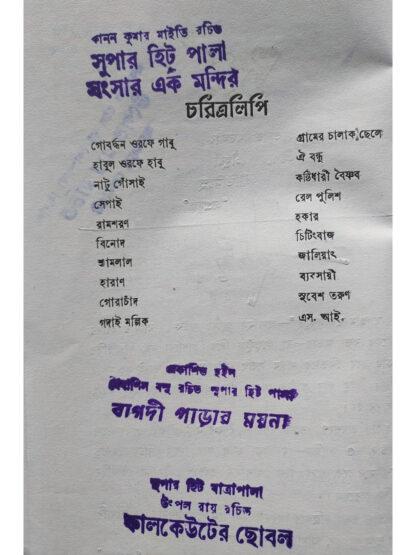 কানন কুমার মাইতি রচিত
সুপার হিট পালা
সংসার এক মন্দির
চরিত্রলিপি
গোবর্দ্ধন ওরফে গাবু গ্রামের চালাক ছেলে
হাবুল ওরফে হাবু ঐ বন্ধু
নাটু গোঁসাই কণ্ঠিধারী বৈষ্ণব
সেপাই রেল পুলিশ
রামশরণ হকার
বিনোদ চিটিংবাজ
শ্যামলাল জালিয়াৎ
হারাণ ব্যবসায়ী
গোরাচাঁদ সুবেশ তরুণ
গদাই মল্লিক এস. আই.
প্রকাশিত হইল
বসু রচিত সুপার হিট পালা
বাগদী পাড়ার ময়না
সুপার হিট যাত্রাপালা
উৎপল রায় রচিত
কালকেউটের ছোবল